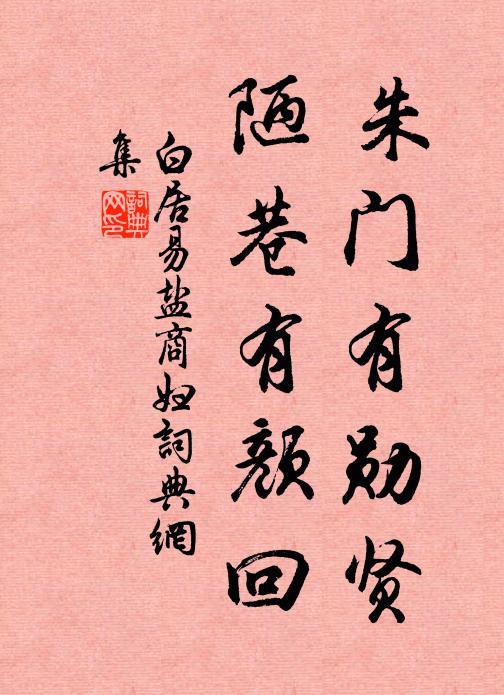 朱门有勋贤
陋巷有颜回
白居易盐商妇詞典網
集
詞典网印